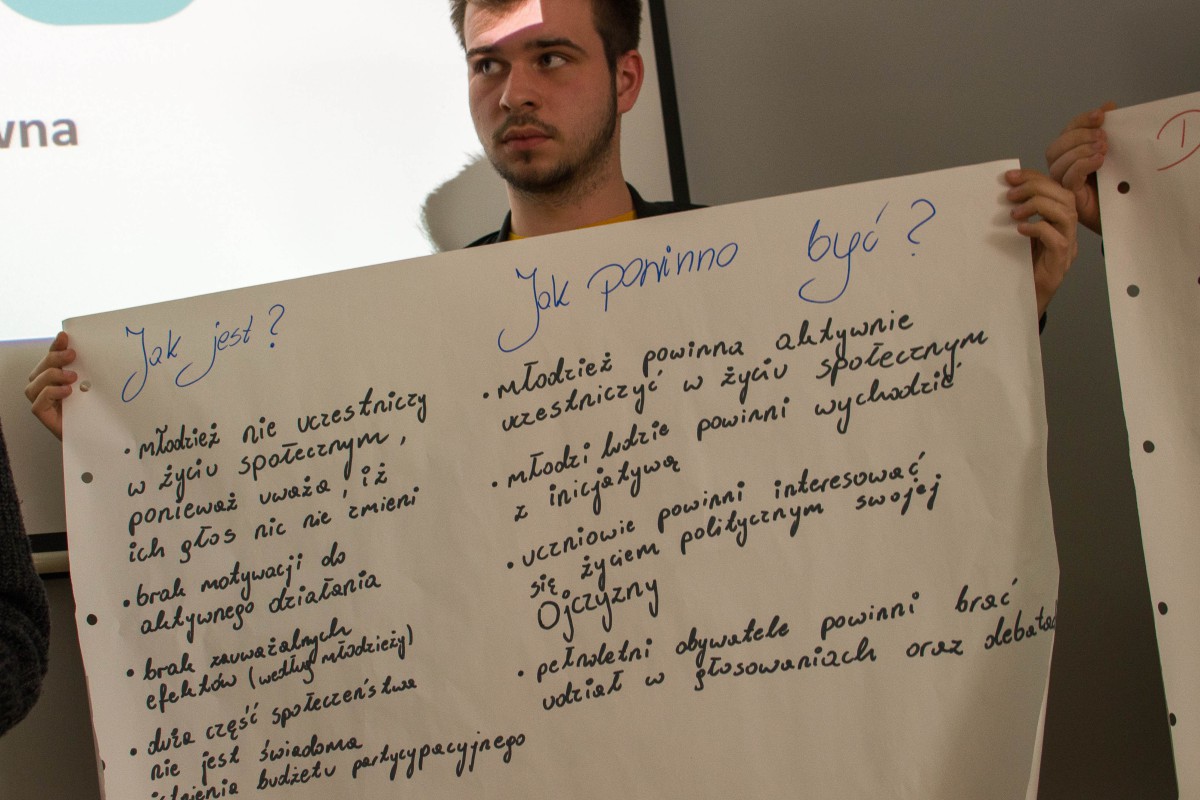 wna
Jak jest?
• młodzież nie uczestniczy
w życiu społecznym,
ponieważ uważa, iż
ich głos nic nie zmieni
• brak motywacji do
aktywnego działania
• brak zauważalnych
efektów (według młodzieży)
• duża część społeczeństwa
nie jest świadoma
istnienia budżetu partycypacyjnego
Jak powinno być?
• młodzież powinna aktywnie
uczestniczyć w życiu społecznym
• młodzi ludzie powinni wychodzić
z inicjatywą
• uczniowie powinni interesować
się życiem politycznym swojej
Ojczyzny
• pełnoletni obywatele powinni brać
udział w głosowaniach oraz debatach
D